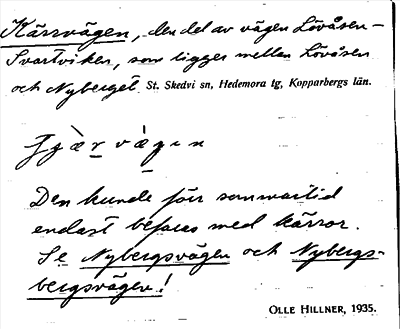 Kärrvägen, den del av vägen Lövåsen-
Svartviken, som ligger mellan Lövåsen
och Nyberget. St. Skedvi sn, Hedemora tg, Kopparbergs län.
Den kunde förr sommartid
endast befaras med kärror.
Se Nybergsvägen och Nybergs-
bergsvägen!
OLLE HILLNER, 1935.